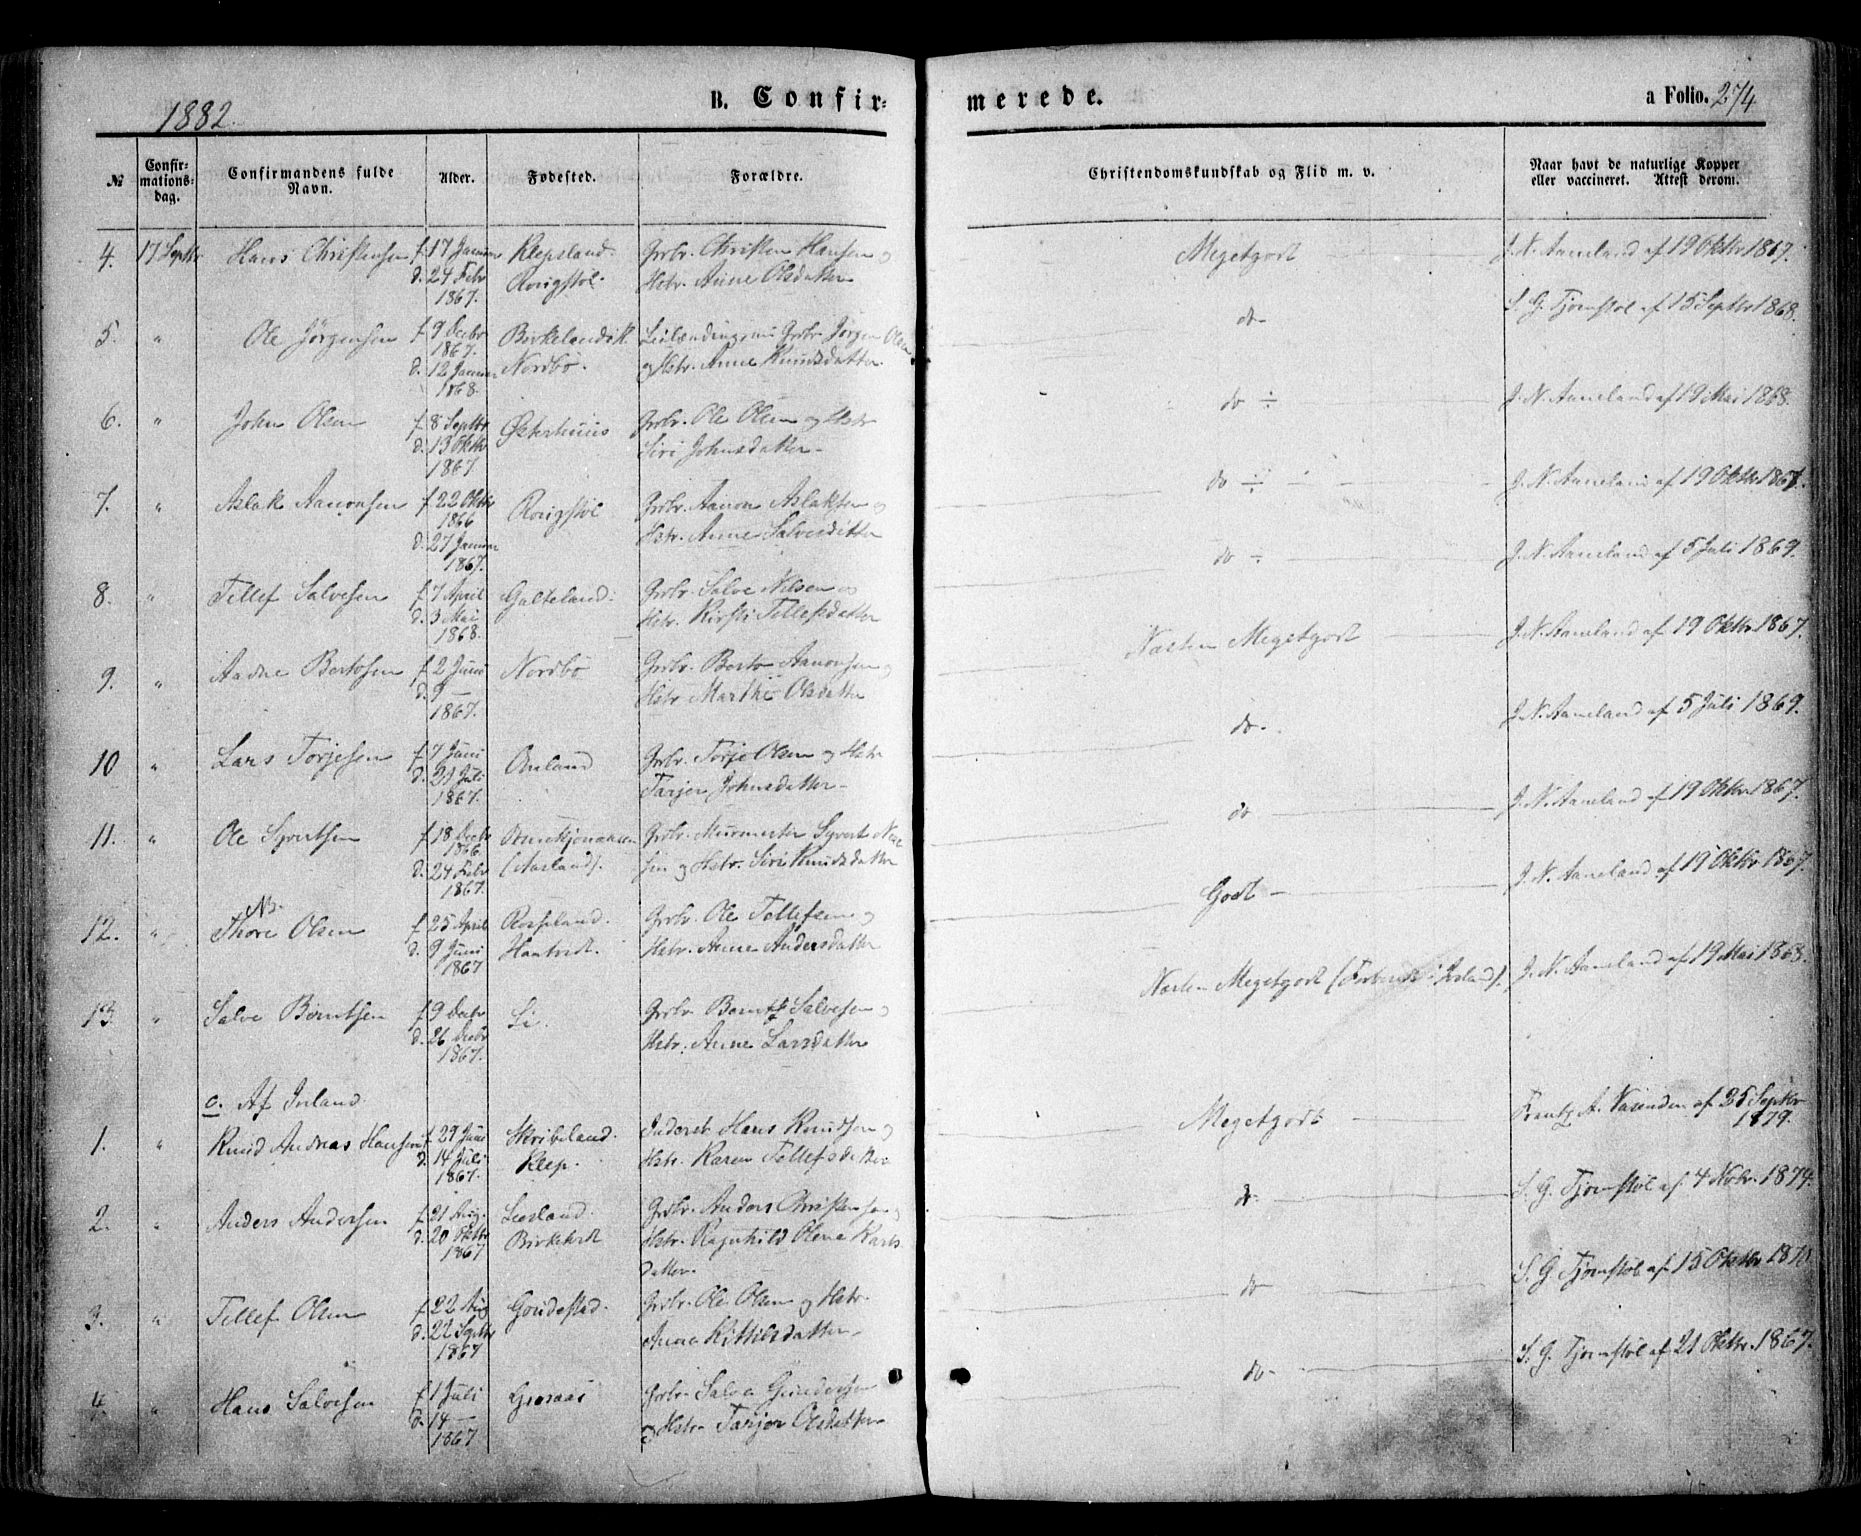 1882.
B. Confir-
merede.
a Folio. 274
№
Confir-
mations-
dag.
Confirmandens fulde
Navn.
Alder.
Fødested.
Forældre.
Christendomskundskab og Flid m. v.
Naar havt de naturlige Kopper
eller vaccineret. Attest derom.
4. 17 Septbr Hans Christensen f. 17 Januar Klepsland Grbr. Christen Hansen og Megetgodt J. N. Aaneland af 19 Oktbr 1867.
d. 24 Febr Hstr. Anne Olsdatter
1867.
5. " Ole Jørgensen f. 9 Decbr Birkelands Grbr Jørgen Olsen do S. G. Tjomstøl af 15 Septbr 1868.
1867. Nordbø. og Hstr. Anne Knudsdatter
d. 12 Januar
1868.
6. " John Olsen f. 8 Septbr Østerhuus Grbr. Ole Olsen og Hstr do ÷ J. N. Aaneland af 19 Mai 1868.
d. 13 Oktbr Siri Johnsdatter
1867.
7. " Aslak Aanonsen f. 22 Oktbr Grbr. Aanon Aslaksen og do ÷ J. N. Aaneland af 19 Oktbr 1867.
1866 Hstr. Anne Salvesdatter
d. 27 Januar
1867.
8. " Tellef Salvesen f. 7 April Galteland Grbr. Salve Nilsen og do ÷ J. N. Aaneland af 5 Juli 1869.
d. 3 Mai Hstr. Kirsti Tellefsdatter
1868.
9. " Aadne Bertosen f. 2 Juni Nordbø Grbr. Berto Aanonsen og Næsten Megetgodt J. N. Aaneland af 19 Oktbr 1867.
d. 9 — Hstr. Marthe Olsdatter
1867.
10 " Lars Torjesen f. 7 Juni Grbr. Torje Olsen og Hstr do J. N. Aaneland af 5 Juli 1869.
d. 21 Juli Tarjer Johnsdatter
1867.
11. " Ole Syvertsen f. 18 Decbr Grbr. Murmester Syvert do J. N. Aaneland af 19 Oktbr 1867.
1866 (Aasland). sen og Hstr. Siri Knudsdatter
d. 24 Febr
1867.
NB.
12. " Thore Olsen f. 25 April Rosseland. Grbr. Ole Tellefsen og Godt J. N. Aaneland af 19 Oktbr 1867.
d. 9 Juni Haatvedt. Hstr. Anne Andersdatter
1867
13. " Salve Berntsen f. 9 Decbr Li. Grbr Bernt Salvesen og Næsten Megetgodt J. N. Aaneland af 19 Mai 1868.
d. 26 Decbr Hstr. Anne Larsdatter
1867.
c. Af Iveland.
1. " Knud Andreas Hansen f. 29 Juni Skribeland. Inderst Hans Knudsen og Megetgodt Frantz A. Vasenden af 25 Septbr
d. 14 Juli Klep. Hstr. Karen Tellefsdatter 1879.
1867.
2. " Anders Andersen f. 21 Aug. Grbr. Anders Christensen og do S. G. Tjomstøl af 4 Novbr. 1874.
d. 20 Oktbr Birketvedt Hstr. Ragnhild Olena Karls-
1867 datter.
3. " Tellef Olsen f. 22 Aug Goudestad. Grbr. Ole Olsen og Hstr. do S. G. Tjomstøl af 15 Oktbr
d. 22 Septbr Anne Kittilsdatter
1867
4. " Hans Salvesen f. 1 Juli Grosaas Grbr Salve Gundersen do S. G. Tjomstøl af 21 Oktbr. 1867.
d. 14 — og Hstr Tarjer Olsdatter
1867